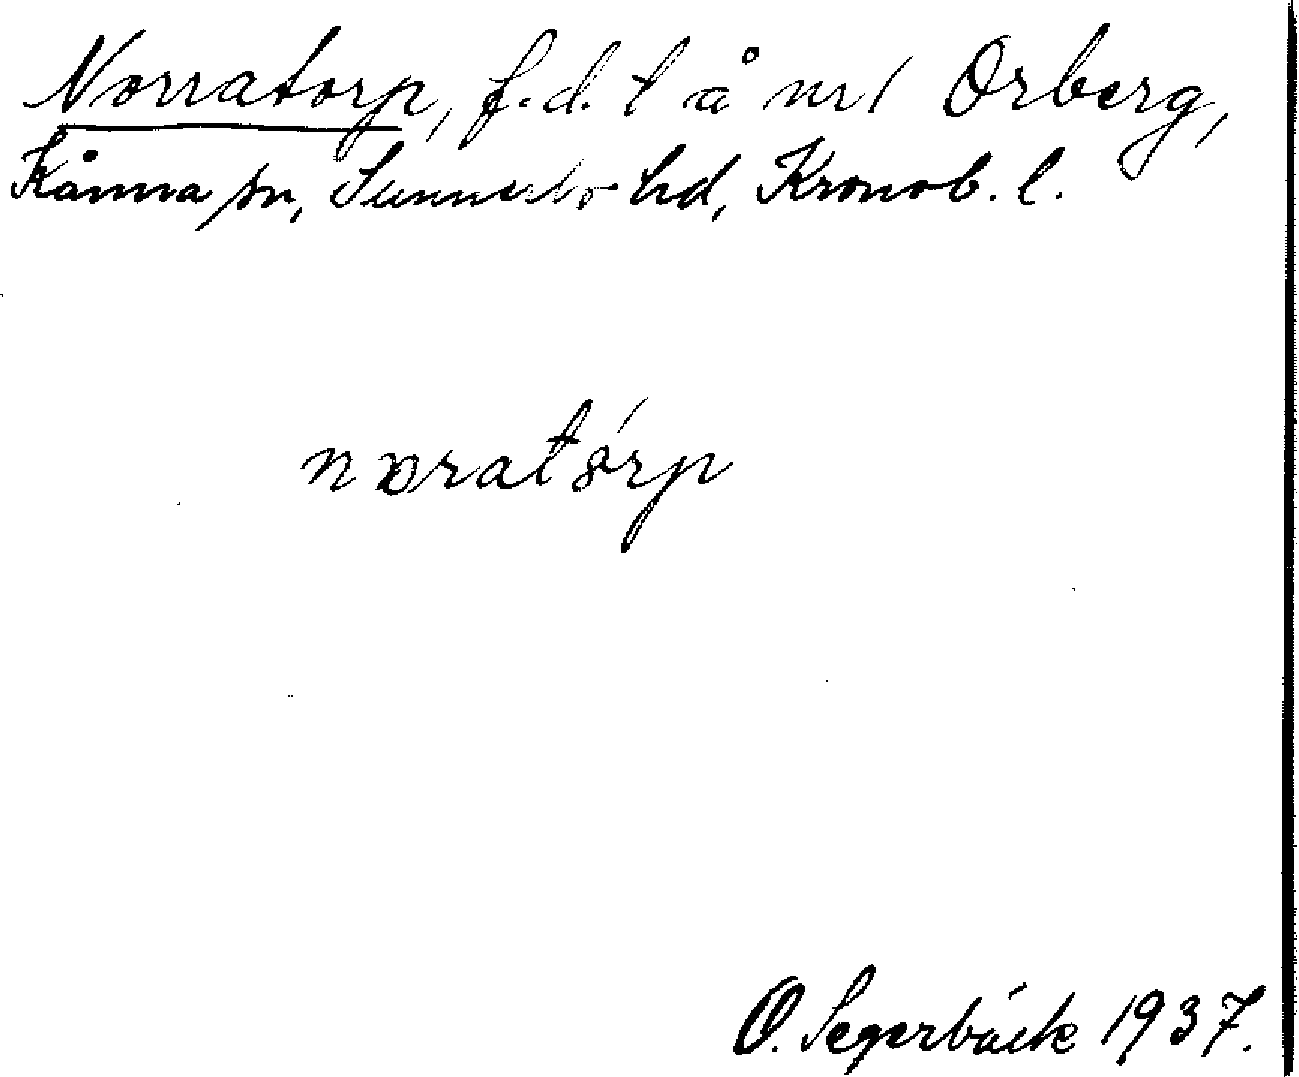 Norratorp, f.d. t å nr 1 Orberg,
Kånna sn, Sunnerbo hd, Kronob. l.
nɒratórp
O. Segerbäck 1937.